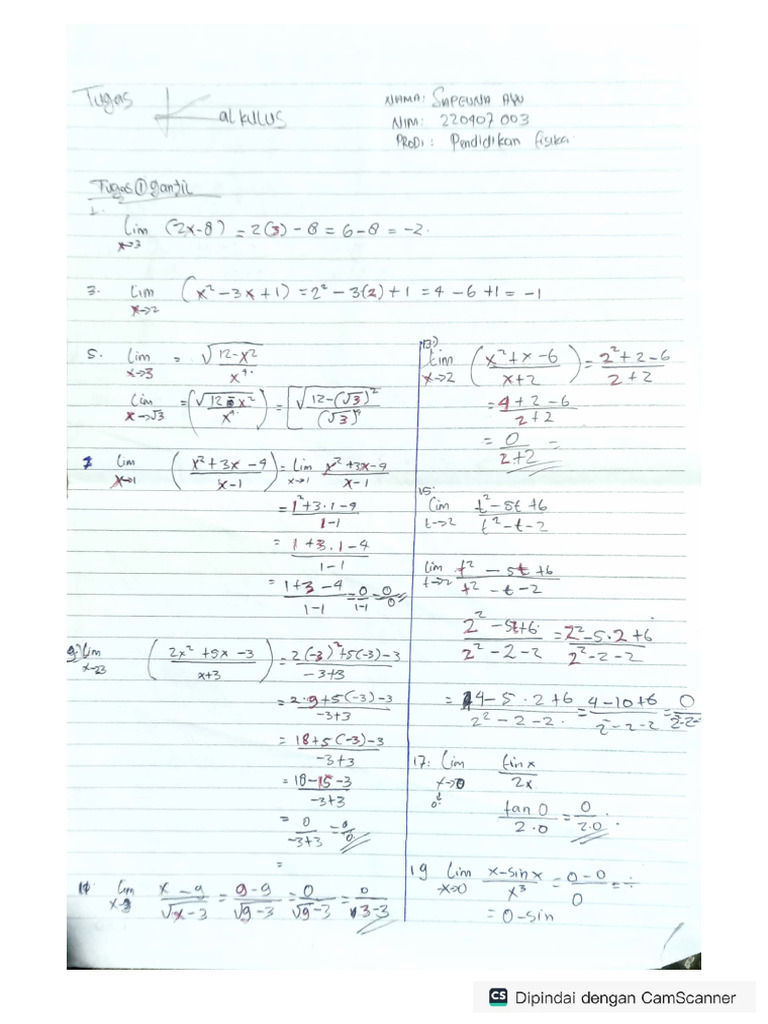 Tugas Kalkulus
NAMA: SAPEUNA AYU
NIM: 220407003
PRODI: Pendidikan fisika
Tugas ① ganjil
1.
lim x→3 (2x-8) = 2(3) - 8 = 6 - 8 = -2.
3. lim x→2 (x² - 3x + 1) = 2² - 3(2) + 1 = 4 - 6 + 1 = -1
5. lim x→3 = √12-x² / x⁴.
lim x→√3 = (√12-x² / x⁴) = [√12-(√3)² / (√3)⁴
7 lim x→1 (x²+3x-4 / x-1) = lim x→1 x²+3x-4 / x-1
= 1²+3.1-4 / 1-1
= 1+3.1-4 / 1-1
= 1+3-4 / 1-1 = 0 / 1-1 = 0/0
9) lim x→-3 (2x²+5x-3 / x+3) = 2(-3)²+5(-3)-3 / -3+3
= 2.9+5(-3)-3 / -3+3
= 18+5(-3)-3 / -3+3
= 18-15-3 / -3+3
= 0 / -3+3 = 0/0
=
11 lim x→9 x-9 / √x-3 = 9-9 / √9-3 = 0 / √9-3 = 0 / 3-3
13)
lim x→2 (x²+x-6 / x+2) = 2²+2-6 / 2+2
= 4+2-6 / 2+2
= 0 / 2+2 =
15.
lim t→2 t²-5t+6 / t²-t-2
lim t→2 t²-5t+6 / t²-t-2
2²-5t+6 / 2²-2-2 = 2²-5.2+6 / 2²-2-2
= 4-5.2+6 / 2²-2-2. = 4-10+6 / 2-2-2 = 0 / 2-2-
17: lim x→0 tin x / 2x
0
tan 0 / 2.0 = 0 / 2.0.
19 lim x→0 x-sin x / x³ = 0-0 / 0 = ÷
= 0-sin
CS Dipindai dengan CamScanner